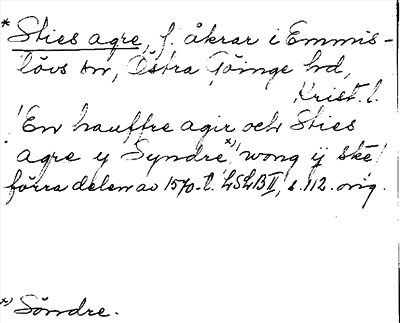 * Sties agre, f. åkrar i Emmis-
lövs sn, Östra Göinge hd,
Krist. l.
"En hauffre agir och Sties
agre y Syndre x) wong ÿ ske"
förra delen av 1570-t. LSLB II, s. 112. orig.
x) Söndre.